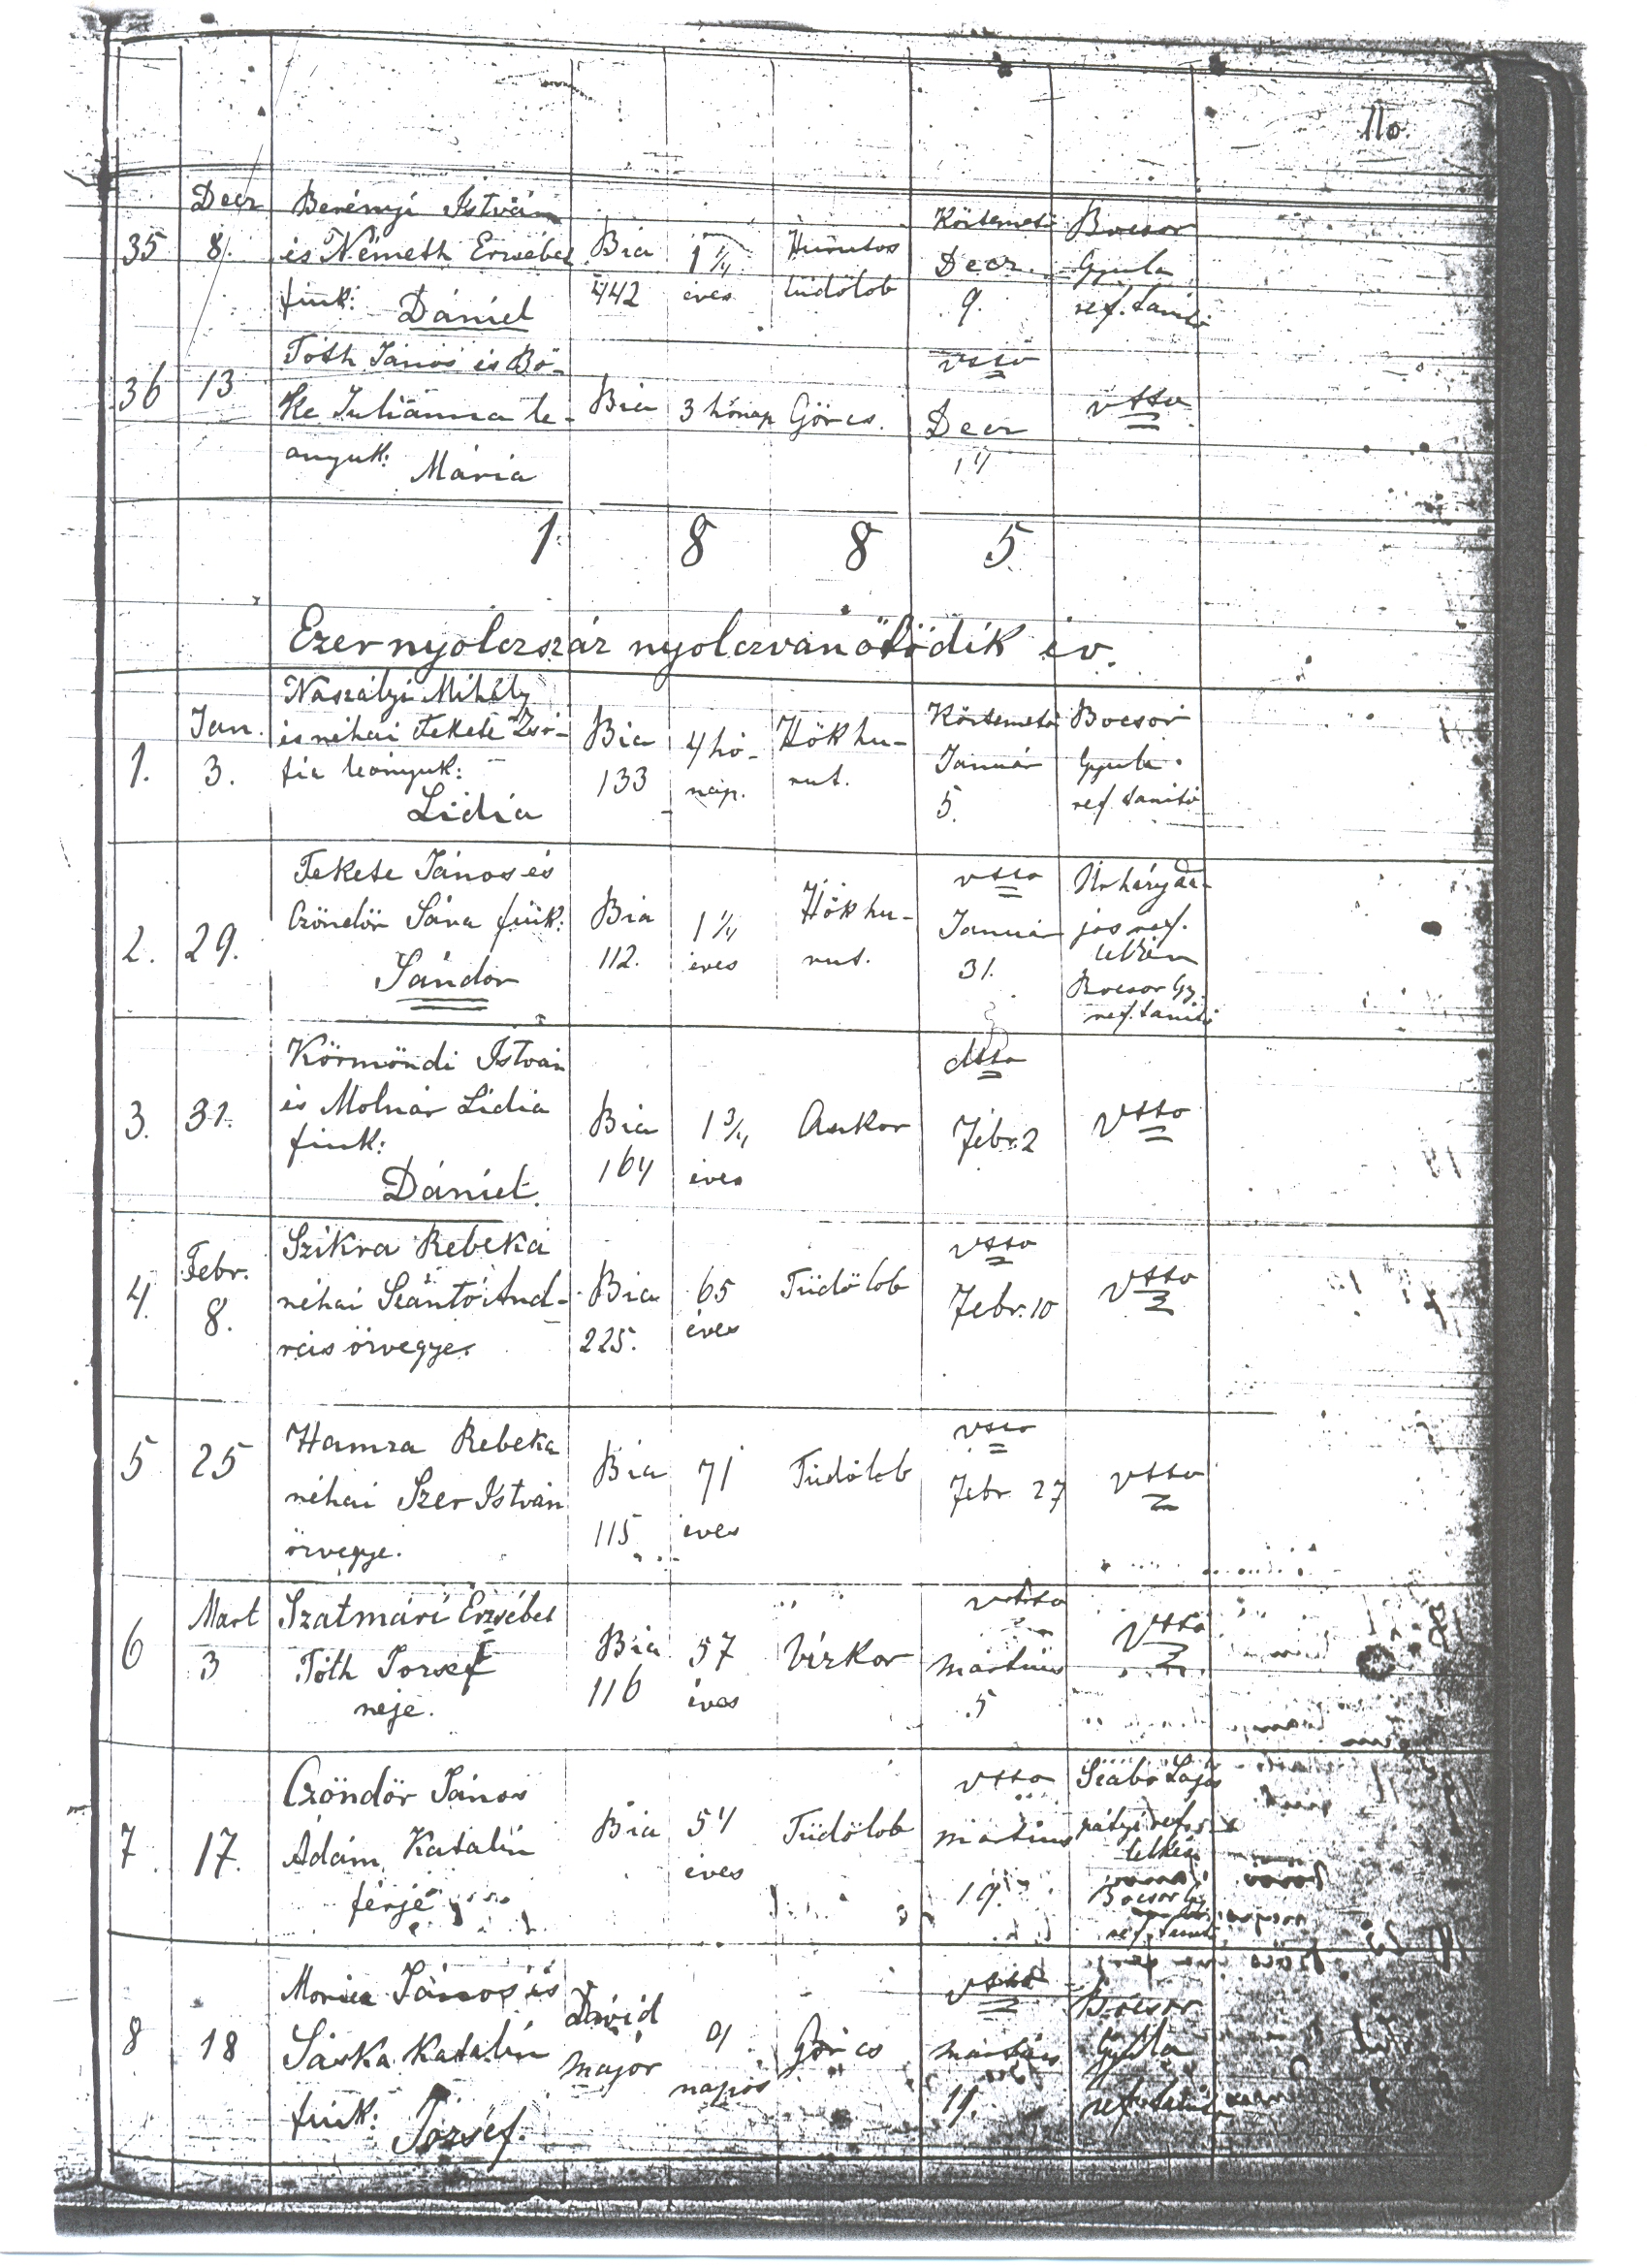 110.
35
Decr
8/.
Berényi István
és Németh Erzsébet
fiuk:
Dániel
Bia
442
1 1/4
éves
Hurutos
tüdőlob
Köztemető
Decr.
9.
Bocsor
Gyula
ref. tanító
36
13
Tóth János és Bő-
ke Juliánna le-
ányuk:
Mária
Bia
3 hónap
Görcs.
vsso
Decr
vsso
1. 8 8 5.
Ezernyolczszáz nyolczvanötödik év.
1.
Jan.
3.
Naszályi Mihály
és néhai Fekete Zsó-
fia leányuk:
Lidia
Bia
133
4 hó-
nap.
Hökhu-
rut.
Köztemető
Január
5.
Bocsor
Gyula
ref. tanító
2.
29.
Fekete János és
Czöndör Sára fiuk:
Sándor
Bia
112.
1 1/4
éves
Hökhu-
rut.
vsso
Január
31.
jos ref.
Bocsor Gy.
ref. tanító
3.
31.
Körmöndi István
és Molnár Lidia
fiuk:
Dániel.
Bia
164
1 3/4
éves
Aszkor
Febr. 2
vsso
4.
Febr.
8.
Szikra Rebeka
néhai Szántó And-
rás özvegye.
Bia
225.
65
éves
Tüdőlob
vsso
Febr. 10
vsso
5
25
Hamza Rebeka
néhai Szer István
özvegye.
Bia
115
71
éves
Tüdőlob
vsso
Febr. 27
vsso
6
Mart
3
Szatmári Erzsébet
Tóth József
neje.
Bia
116
57
éves
Vízkor
vsso
Martius
5
vsso
7.
17.
Czöndör János
Ádám Katalin
férje
Bia
54
éves
Tüdőlob
vsso
Martius
19.
Szabó Lajos
pátyi refor.
lelkész
Bocsor Gy.
ref. tanító
8
18
Moricz János és
Sárka Katalin
fiuk:
József.
Dávid
major
napos
Görcs
vsso
Martius
19.
Bocsor
Gyula